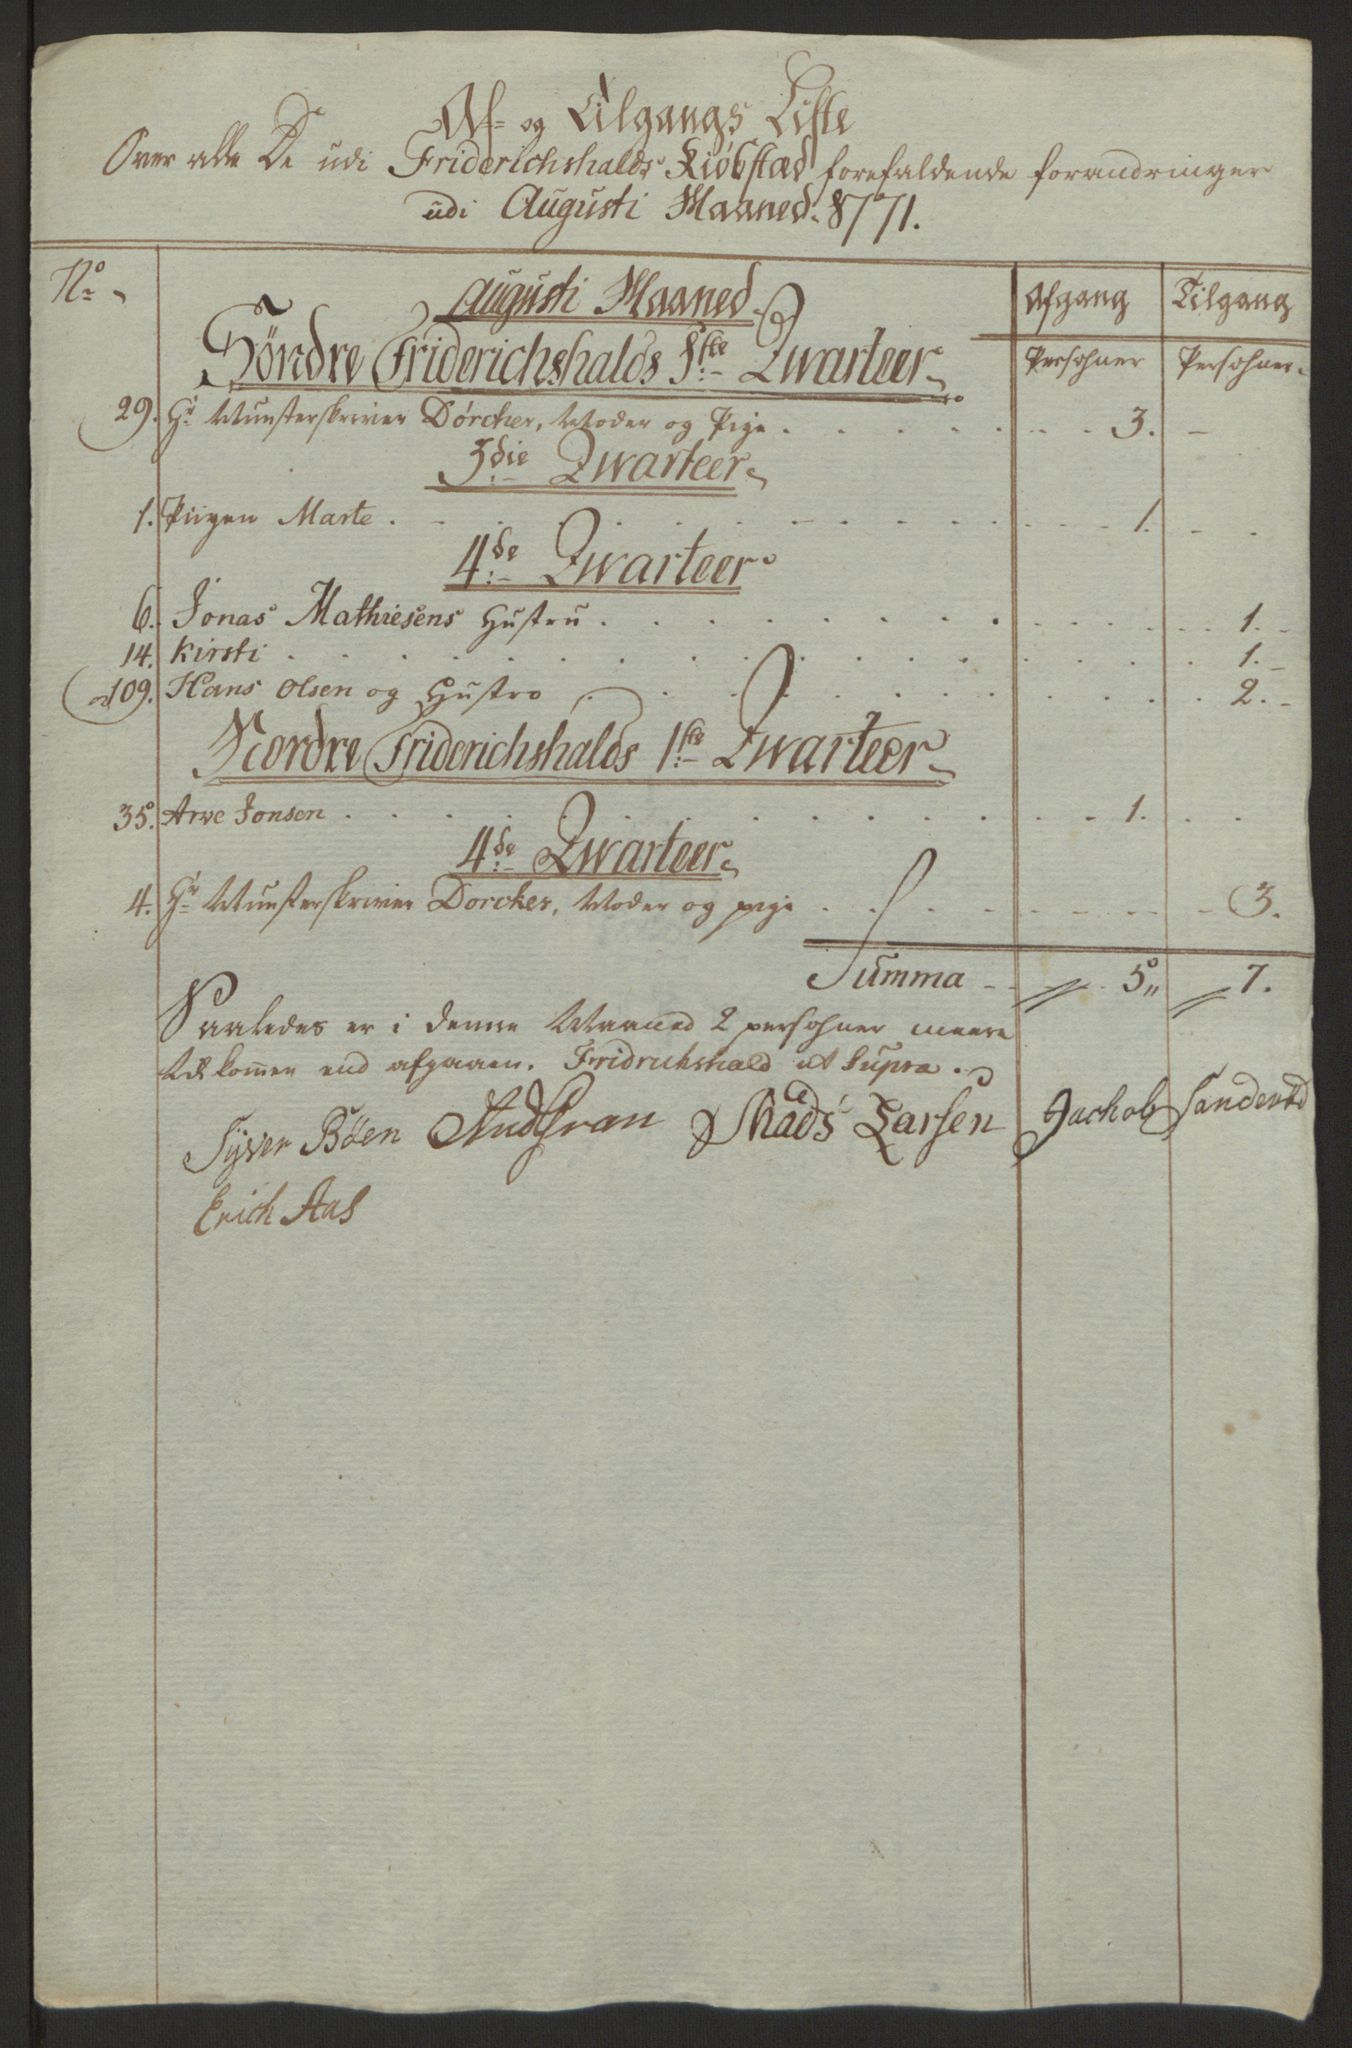 Af- og Tilgangs Liste
Over alle De udi Friderichshalds Kiöbstæd forefaldende forandringer
udi Augusti Maaned 1771.
No Augusti Maaned Afgang Tilgang
Söndre Friderichshalds 1ste Qwarteer Persohner Persohner
29. Hr Munsterskriver Dörcher, Moder og Pige . . . 3. -
3die Qwarteer
1. Piigen Marte . . . 1. -
4de Qwarteer
6. Jonas Mathiesens Hustru . . . 1. -
14. Kirsti . . . 1. -
109. Hans Olsen og Hustro . . . 2. -
Nordre Friderichshalds 1ste Qwarteer
35. Arve Jonsen . . . 1. . .
4de Qwarteer
4. Hr Munsterskriver Dorcher, Moder og pige . . . 3.
Summa - 5 " 7.
Saaledes er i denne Maaned 2 persohner meere
tilkommen end afgaaen. Fridrichshald ut Supra.
Syver Böen And Gran Mads Larsen Jachob
Erich Aas